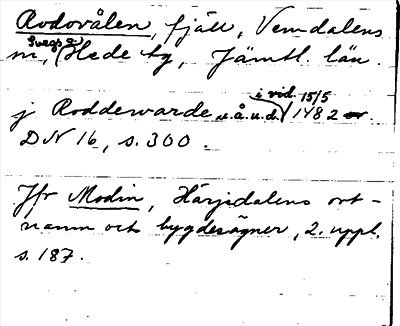 Rodovålen, fjäll, Vemdalens
sn, (Svegs o.) Hede tg, Jämtl. län.
j Roddewarde u.å.u.d. i vid. 15/5 1482 or.
DN 16, s. 300.
Jfr Modin, Härjedalens ort-
namn och bygdesägner, 2. uppl.
s. 187.